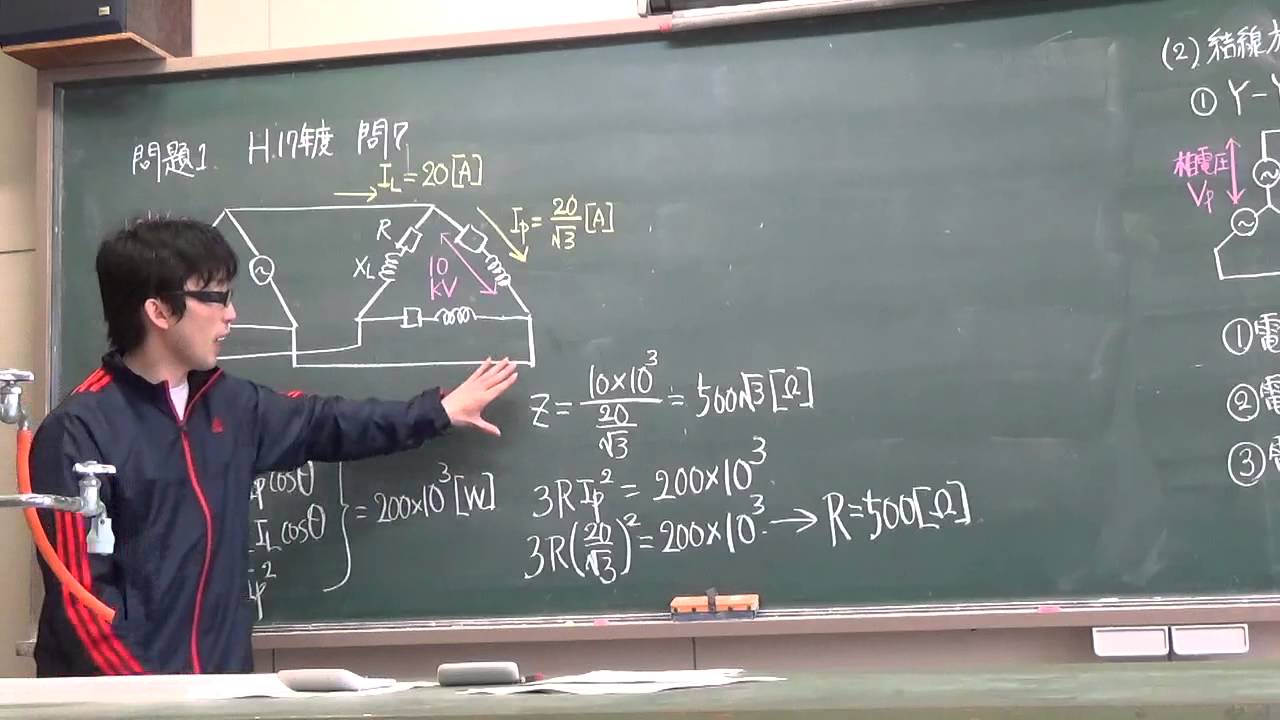 問題1. H.17年度 問7
I_L=20[A]
I_p=20/√3[A]
R
X_L
10
kV
Z=10×10^3/(20/√3)=500√3[Ω]
cosθ
I_L cosθ
=200×10^3[W]
3RI_p^2=200×10^3
3R(20/√3)^2=200×10^3→R=500[Ω]
(2)結線
①Y-Y
相電圧
V_p
①電
②電
③